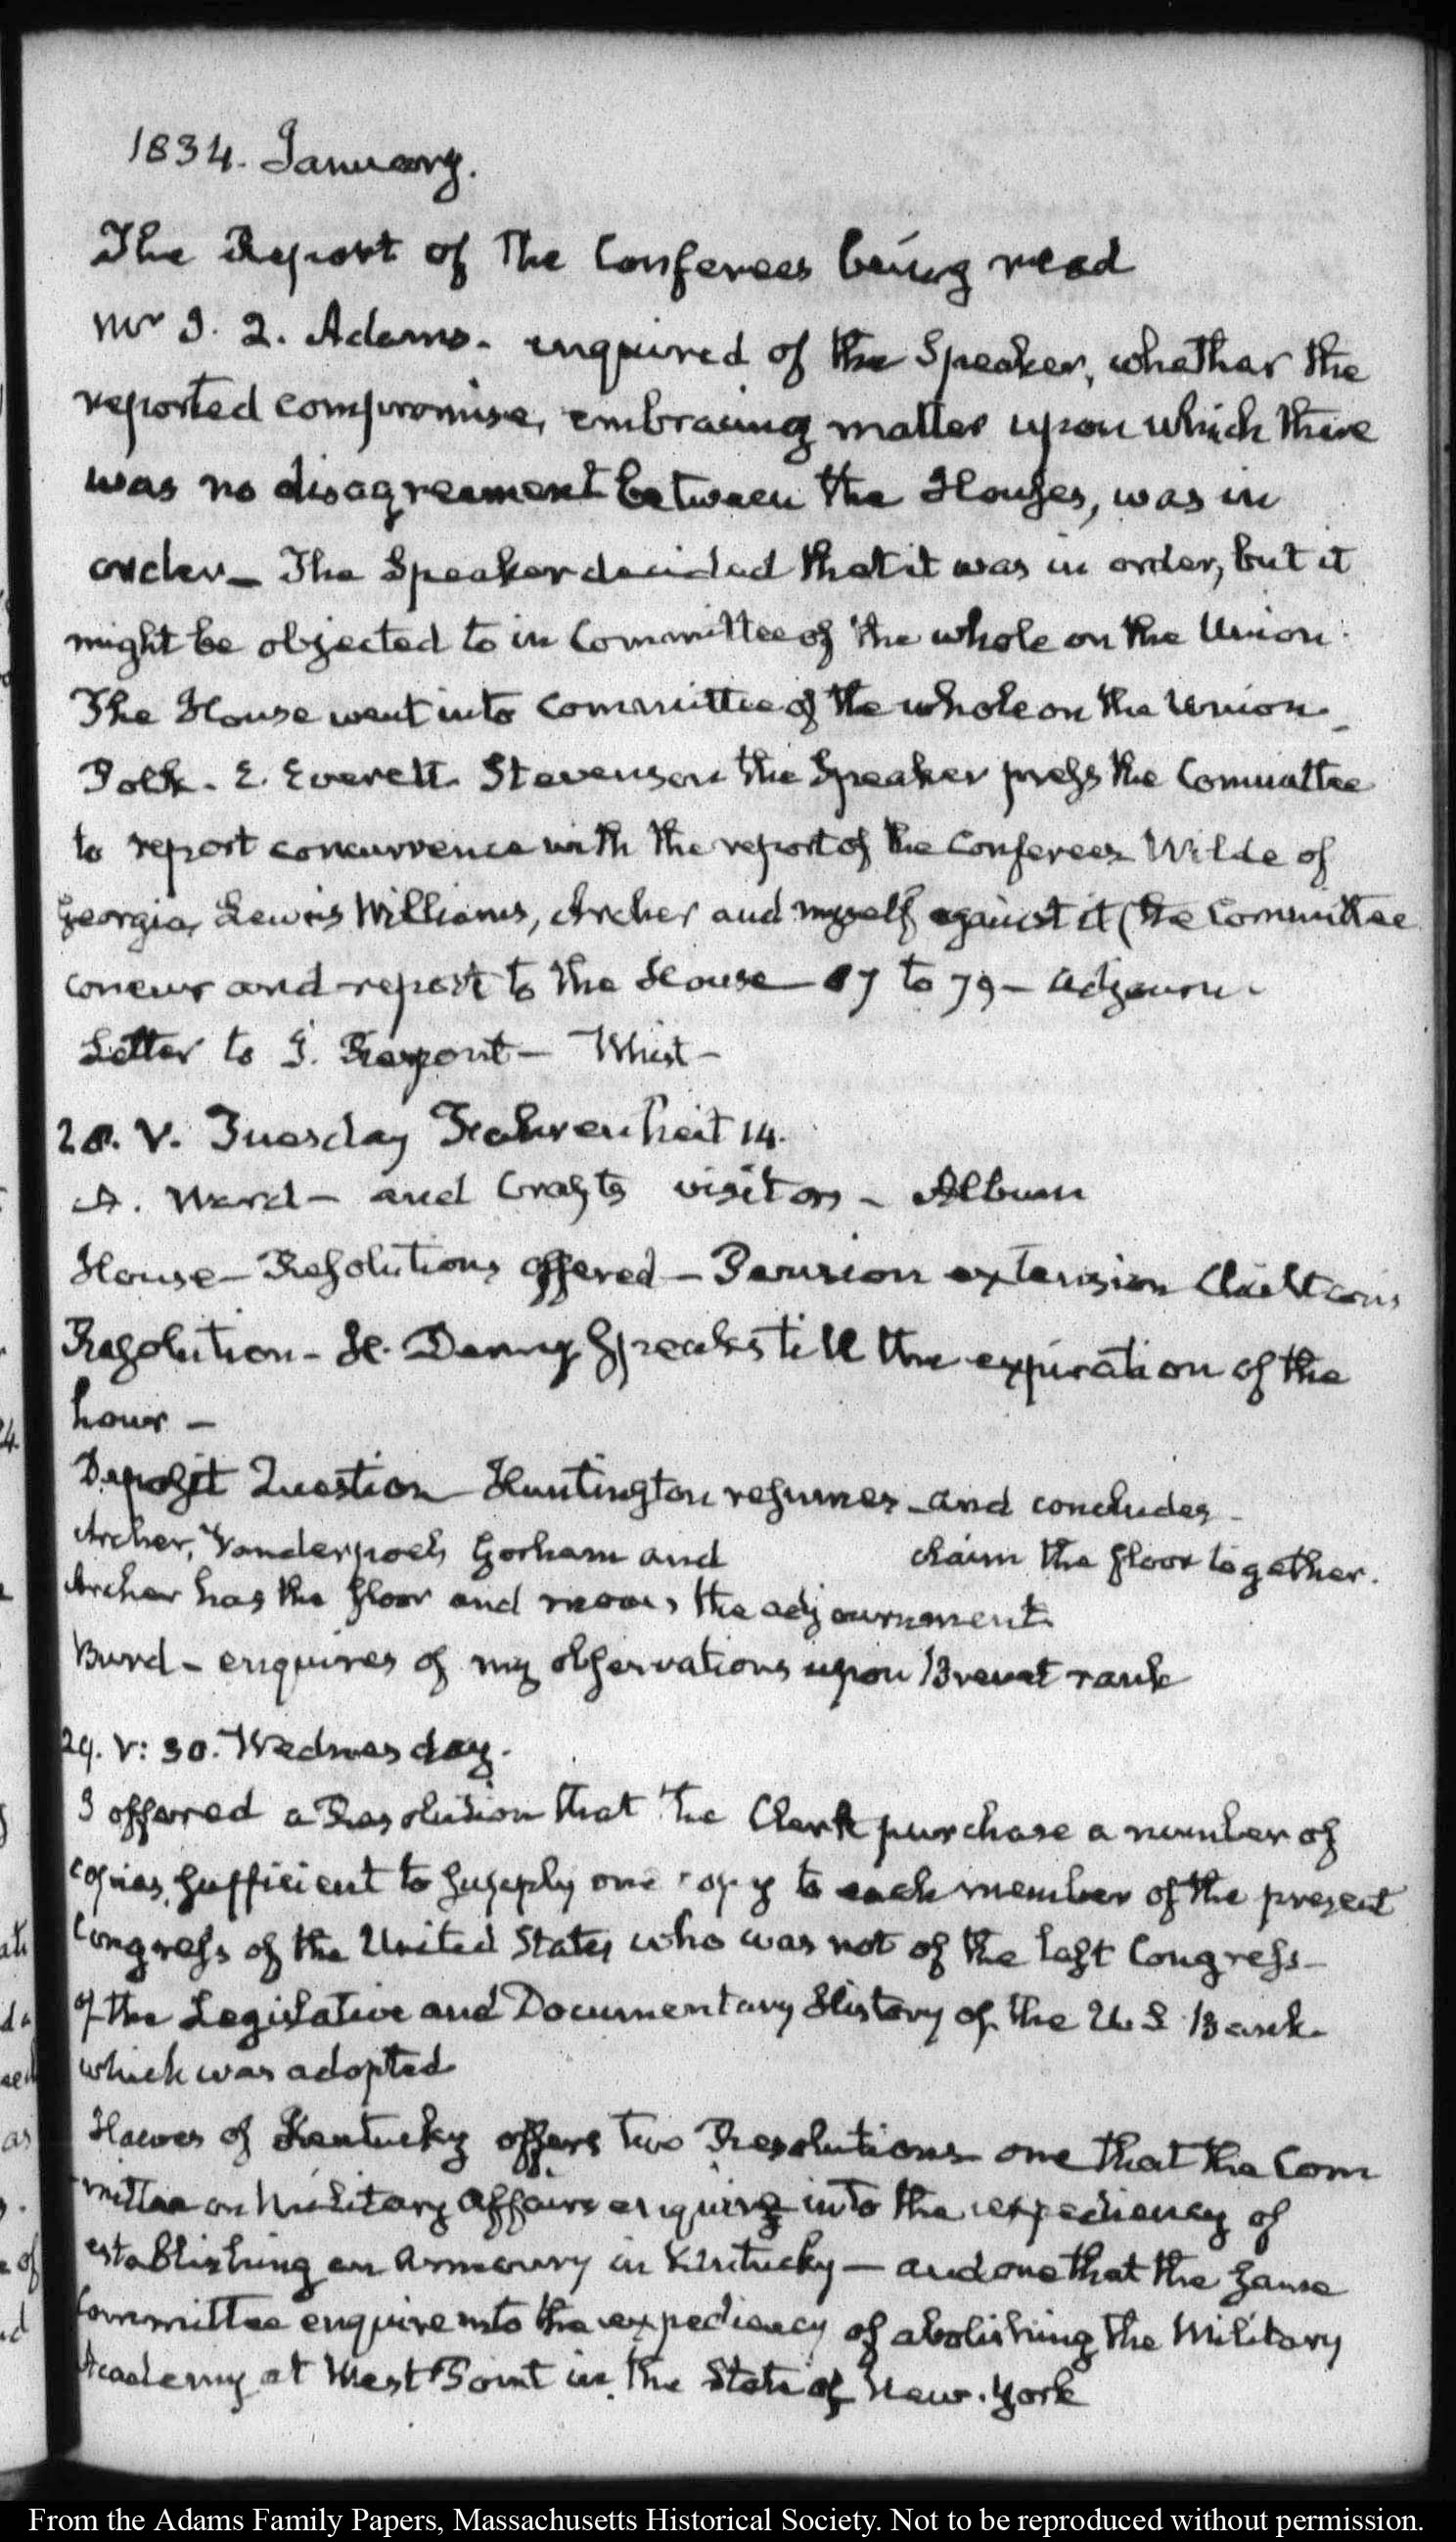 1834. January.
The Report of the Conferees being read
Mr J. Q. Adams. enquired of the Speaker, whether the
reported compromise, embracing matter upon which there
was no disagreement between the Houses, was in
order— The Speaker decided that it was in order, but it
might be objected to in Committee of the whole on the Union.
The House went into Committee of the whole on the Union.
Polk. E. Everett. Stevenson the Speaker press the Committee
to report concurrence with the report of the Conferees Wilde of
Georgia, Lewis Williams, Archer and myself against it (the Committee
concur and report to the House— 87 to 79— Adjourn.
Letter to J. Pierpont— Whist—
28. V. Tuesday Fahrenheit 14.
A. Ward— and Crafts visitors— Album
House— Resolutions offered— Pension extension Chilton's
Resolution— H. Denny speaks till the expiration of the
hour—
Deposit Question— Huntington resumes and concludes—
Archer, Vanderpoel, Gorham and claim the floor together.
Archer has the floor and moves the adjournment.
Burd— enquires of my observations upon Brevet rank
29. V: 30. Wednesday.
I offered a Resolution that the Clerk purchase a number of
copies, sufficient to supply one copy to each member of the present
Congress of the United States who was not of the last Congress—
of the Legislative and Documentary History of the U. S. Bank.
which was adopted
Hawes of Kentucky offers two Resolutions one that the Com
mittee on Military Affairs enquire into the expediency of
establishing an Armoury in Kentucky— and one that the same
Committee enquire into the expediency of abolishing the Military
Academy at West Point in the State of New. York
From the Adams Family Papers, Massachusetts Historical Society. Not to be reproduced without permission.